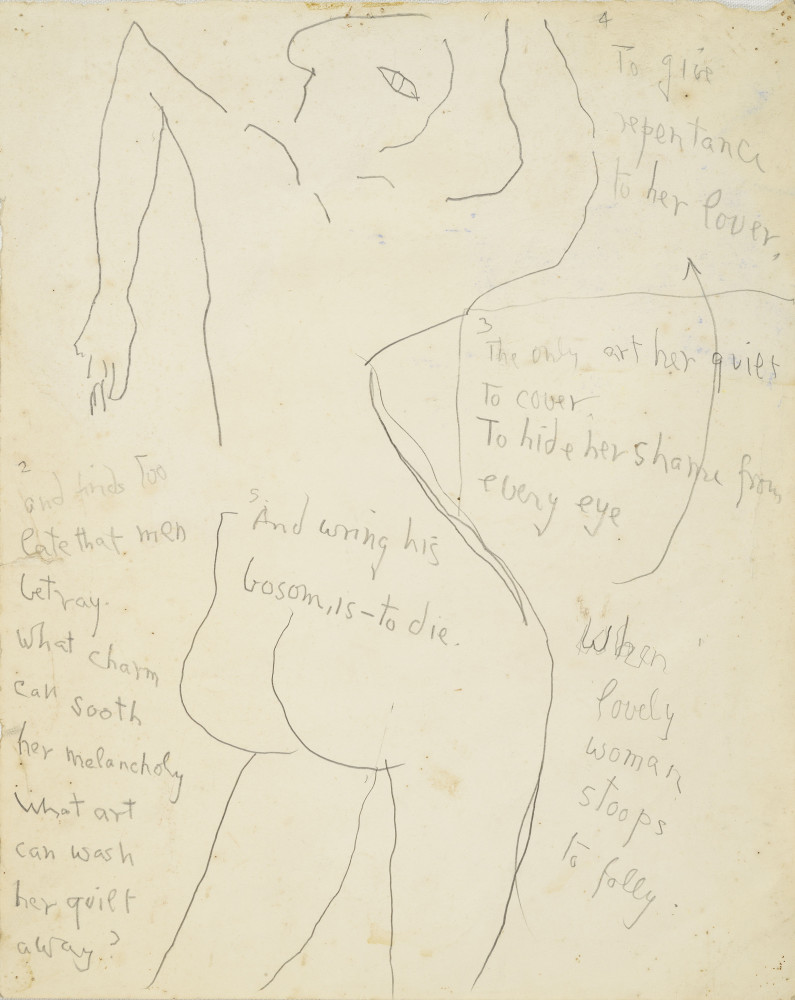 When
lovely
woman
stoops
to folly.
2
and finds Too
late that men
betray.
What charm
can sooth
her melancholy
What art
can wash
her guilt
away?
3
The only art her guilt
To cover.
To hide her shame from
every eye
4
To give
repentance
to her lover,
5.
And wring his
bosom, is – to die.